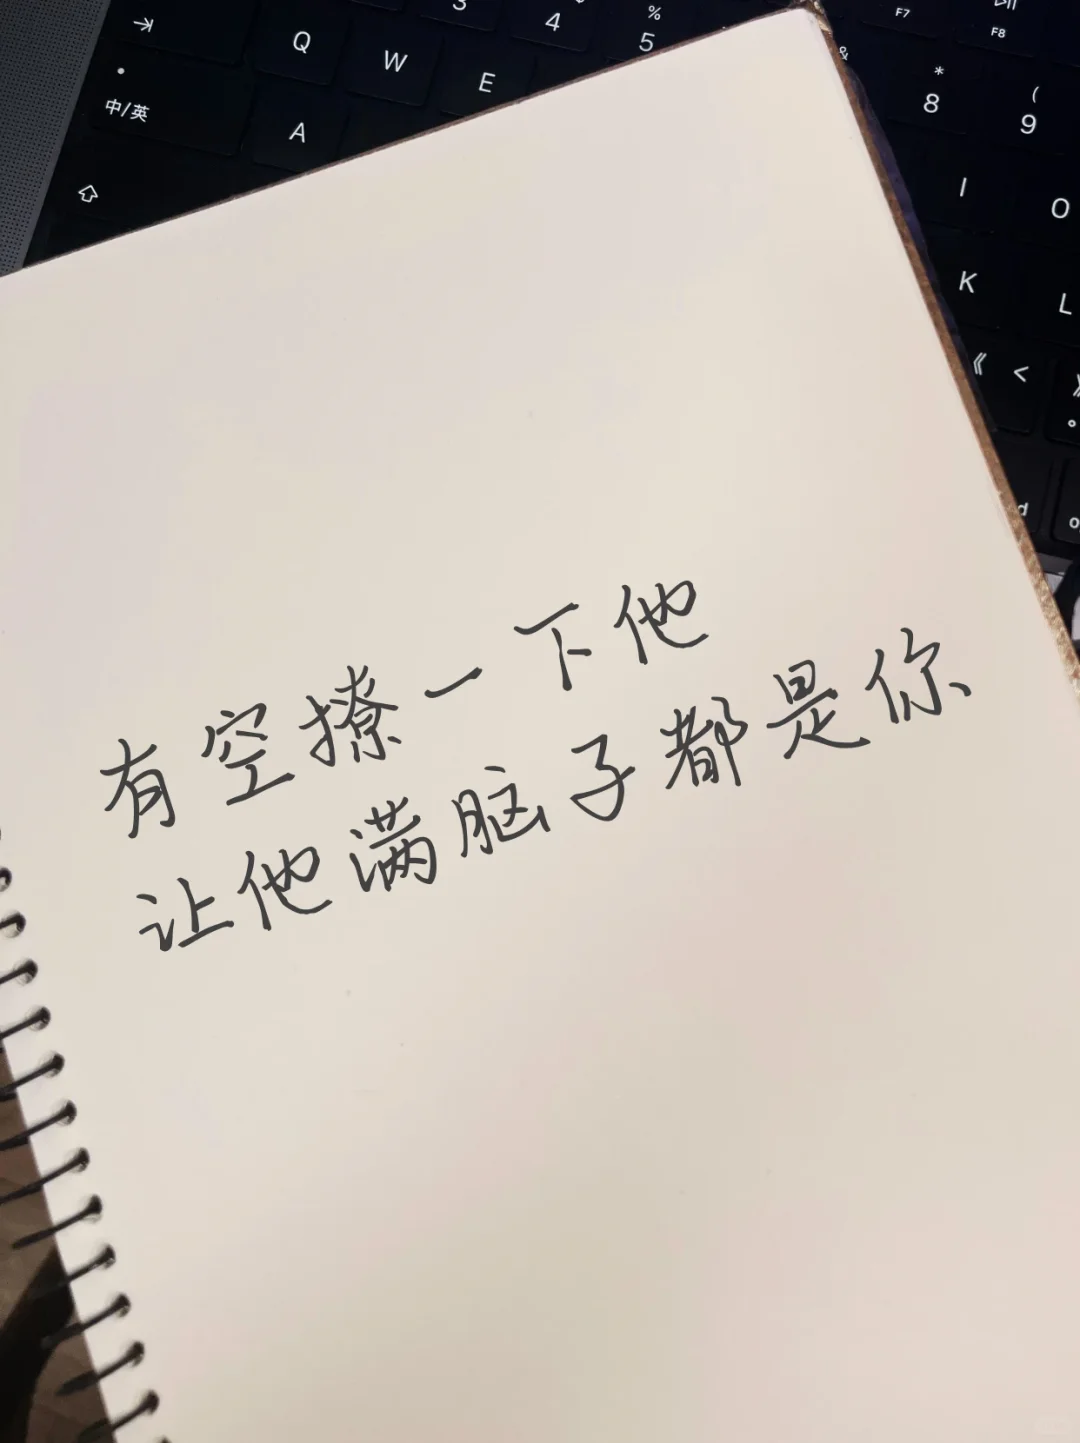 3
4
%
5
F7
F8
Q
W
E
&
*
8
(
9
中/英
A
I
O
K
L
《 <
有空撩一下他
让他满脑子都是你